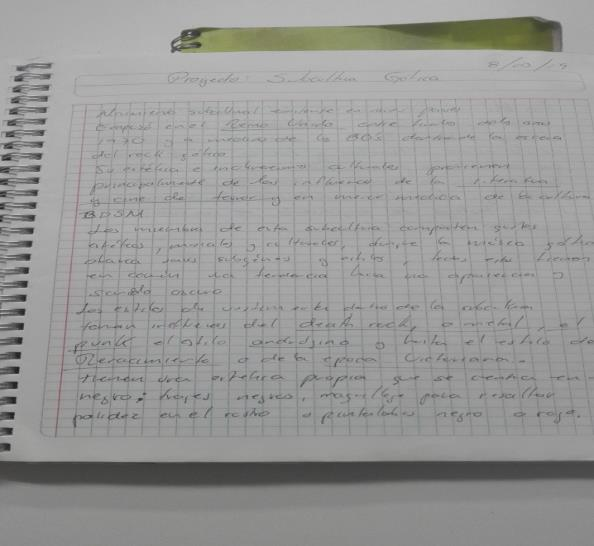 8/10/19
Proyecto: Subcultura Gotica
Movimiento subcultural existente en países
Empezó en el Reino Unido entre finales de los años
1970 y a mediados de la 80s, durante la escena
del rock gótico
Su estética e inclinaciones culturales provienen
principalmente de las influencias de la literatura
y cine de terror y en menor medida de la cultura
BDSM
Los miembros de esta subcultura comparten gustos
estéticos, musicales y culturales, aunque la música gótica
abarca varios subgéneros y estilos, todos estos tienen
en común la tendencia hacia una apariencia y
sonido oscuro
Los estilos de vestimenta dentro de la subcultura
toman influencias del death rock, o metal, el
punk el estilo andrógino y hasta el estilo de
Renacimiento o de la epoca victoriana.
tienen una estética propia que se centra en
negro: trajes negros, maquillaje para resaltar
palidez en el rostro o pintalabios negro o rojo.